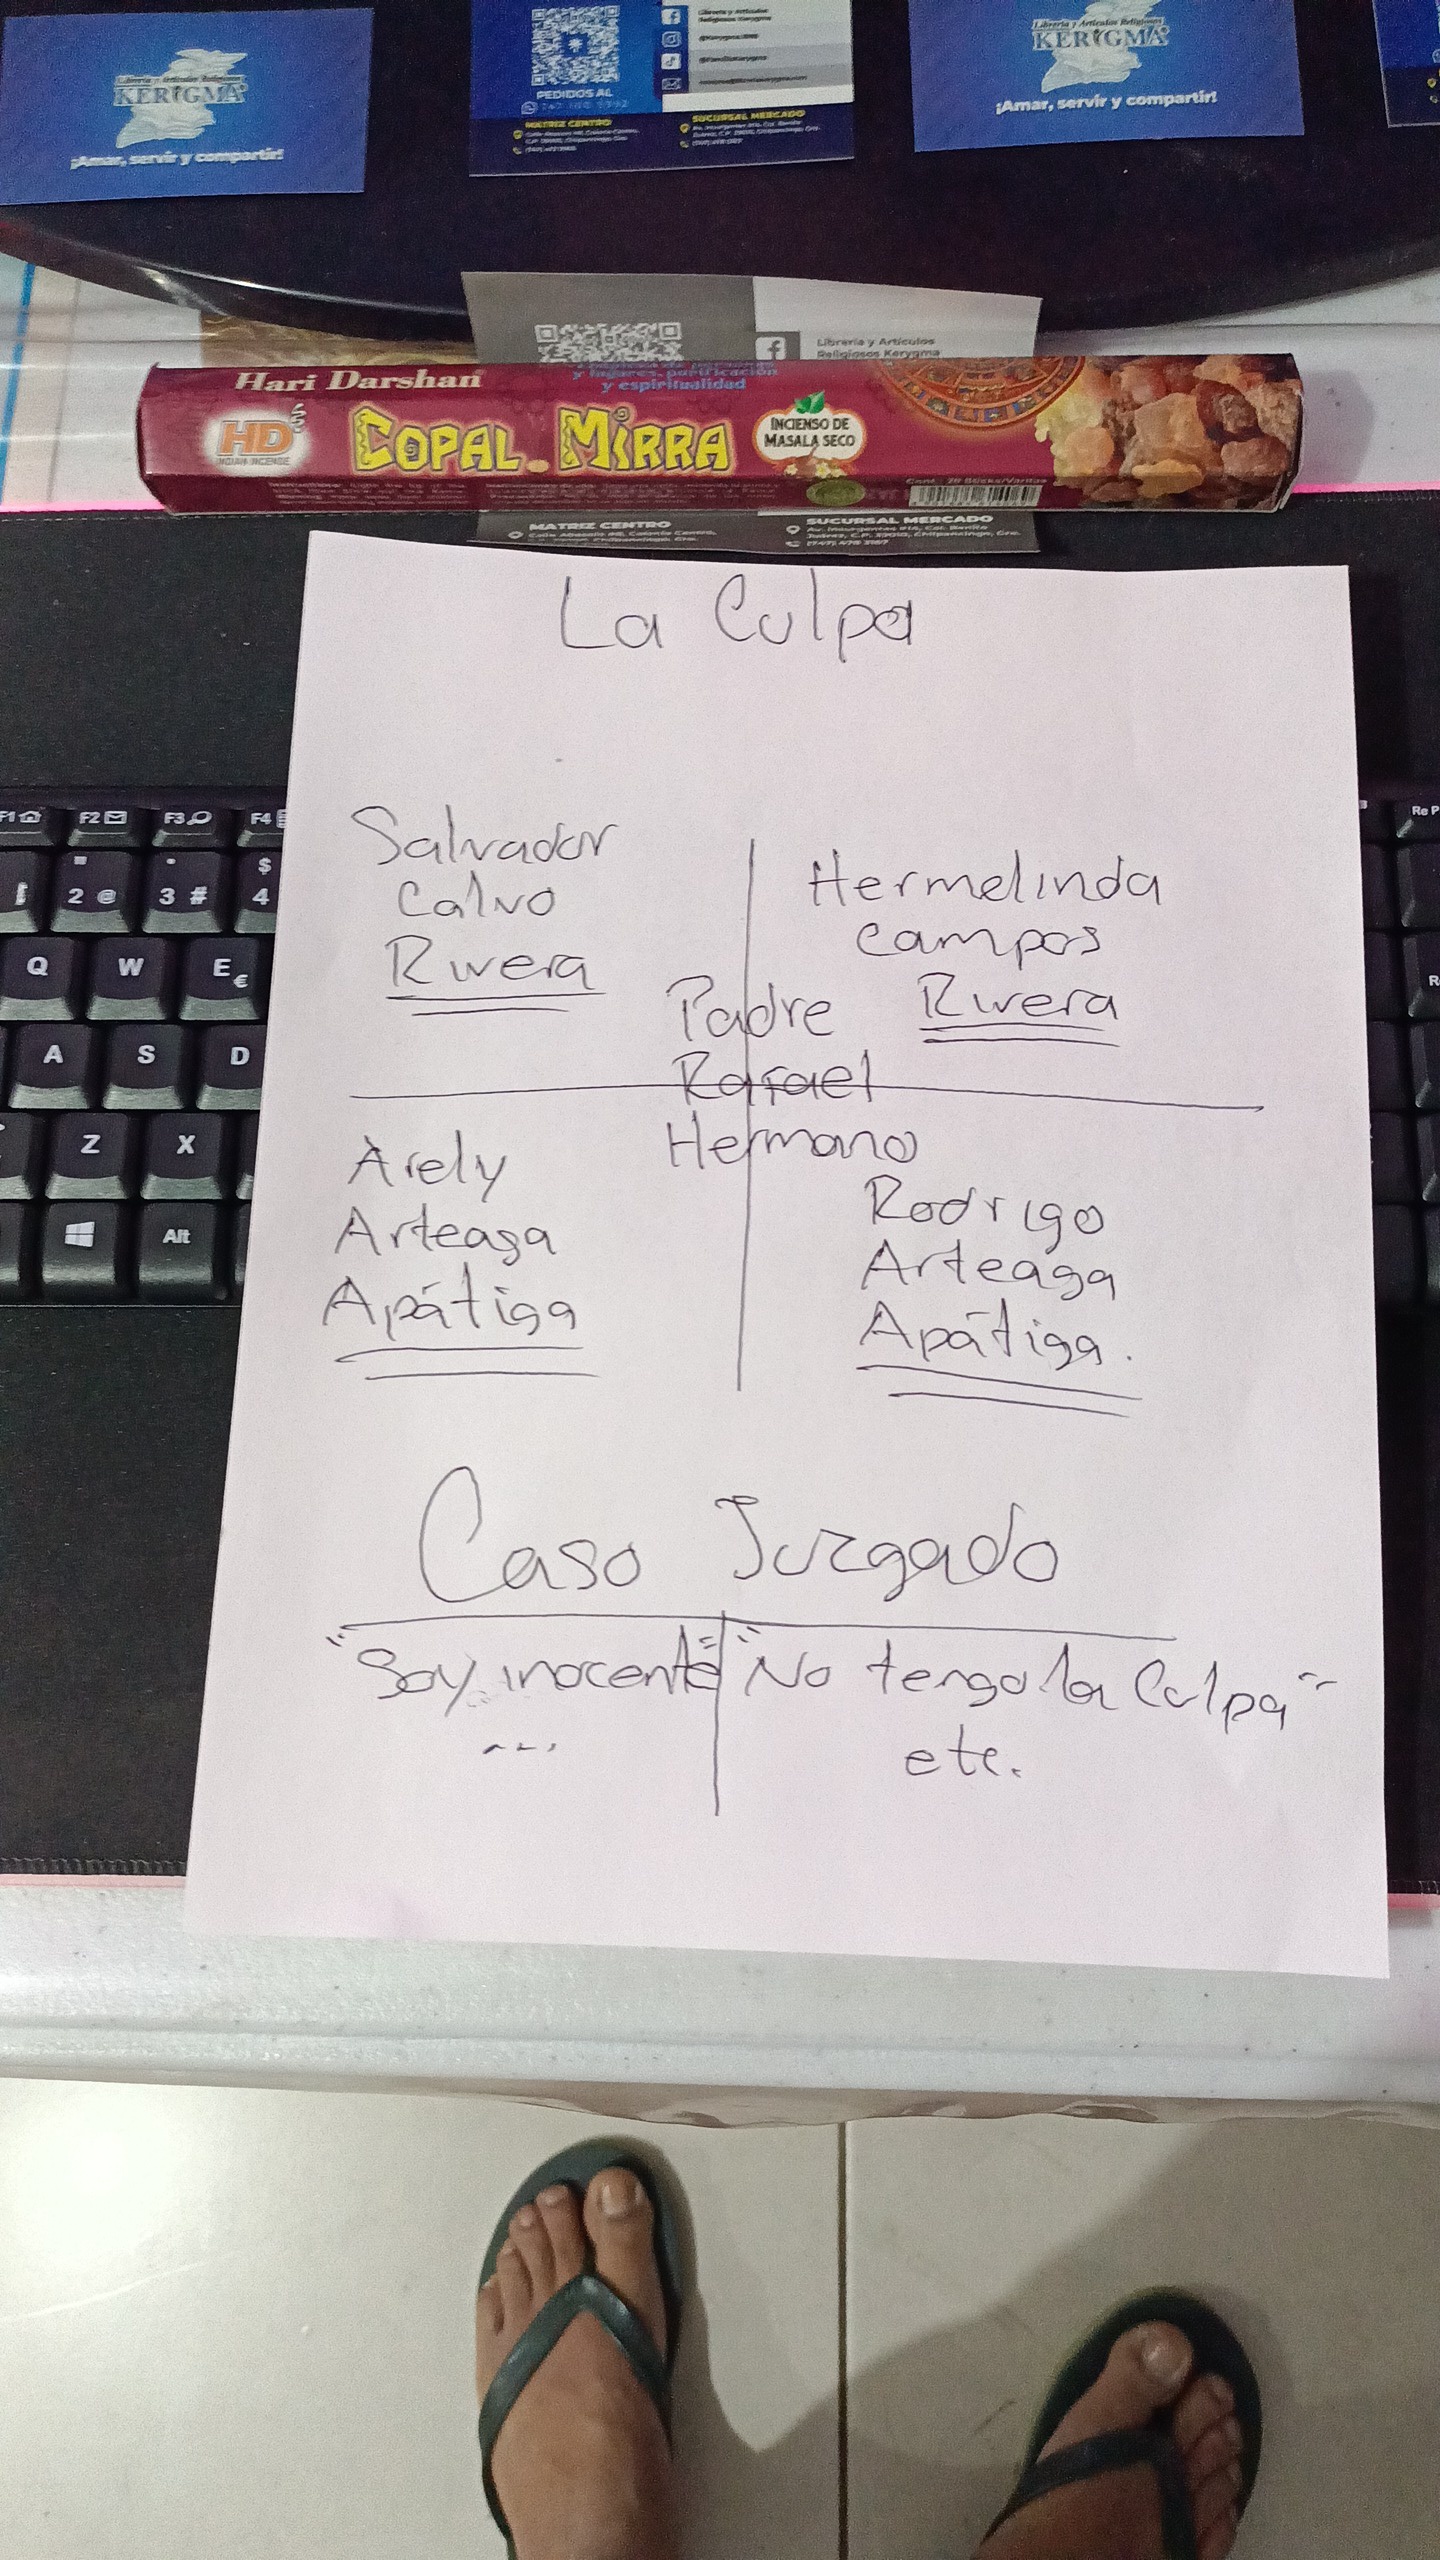 Librería y Artículos Religiosos
KERYGMA
¡Amar, servir y compartir!
Librería y Artículos
Religiosos Kerygma
PEDIDOS AL
MATRIZ CENTRO
SUCURSAL MERCADO
Librería y Artículos Religiosos
KERYGMA
¡Amar, servir y compartir!
Librería y Artículos
Religiosos Kerygma
Hari Darshan
y lugares, purificación
y espiritualidad
HD
INDIAN INCENSE
COPAL-MIRRA
INCIENSO DE
MASALA SECO
MATRIZ CENTRO
SUCURSAL MERCADO
La Culpa
Salvador
Calvo
Rivera
Hermelinda
Campos
Rivera
Padre
Rafael
Hermano
Arely
Arteaga
Apátiga
Rodrigo
Arteaga
Apátiga.
Caso Juzgado
"Soy inocente"
...
"No tengo la Culpa"
etc.
F1 F2 F3 F4
" 2 @ · 3 # $ 4
Q W E €
A S D
Z X
Alt